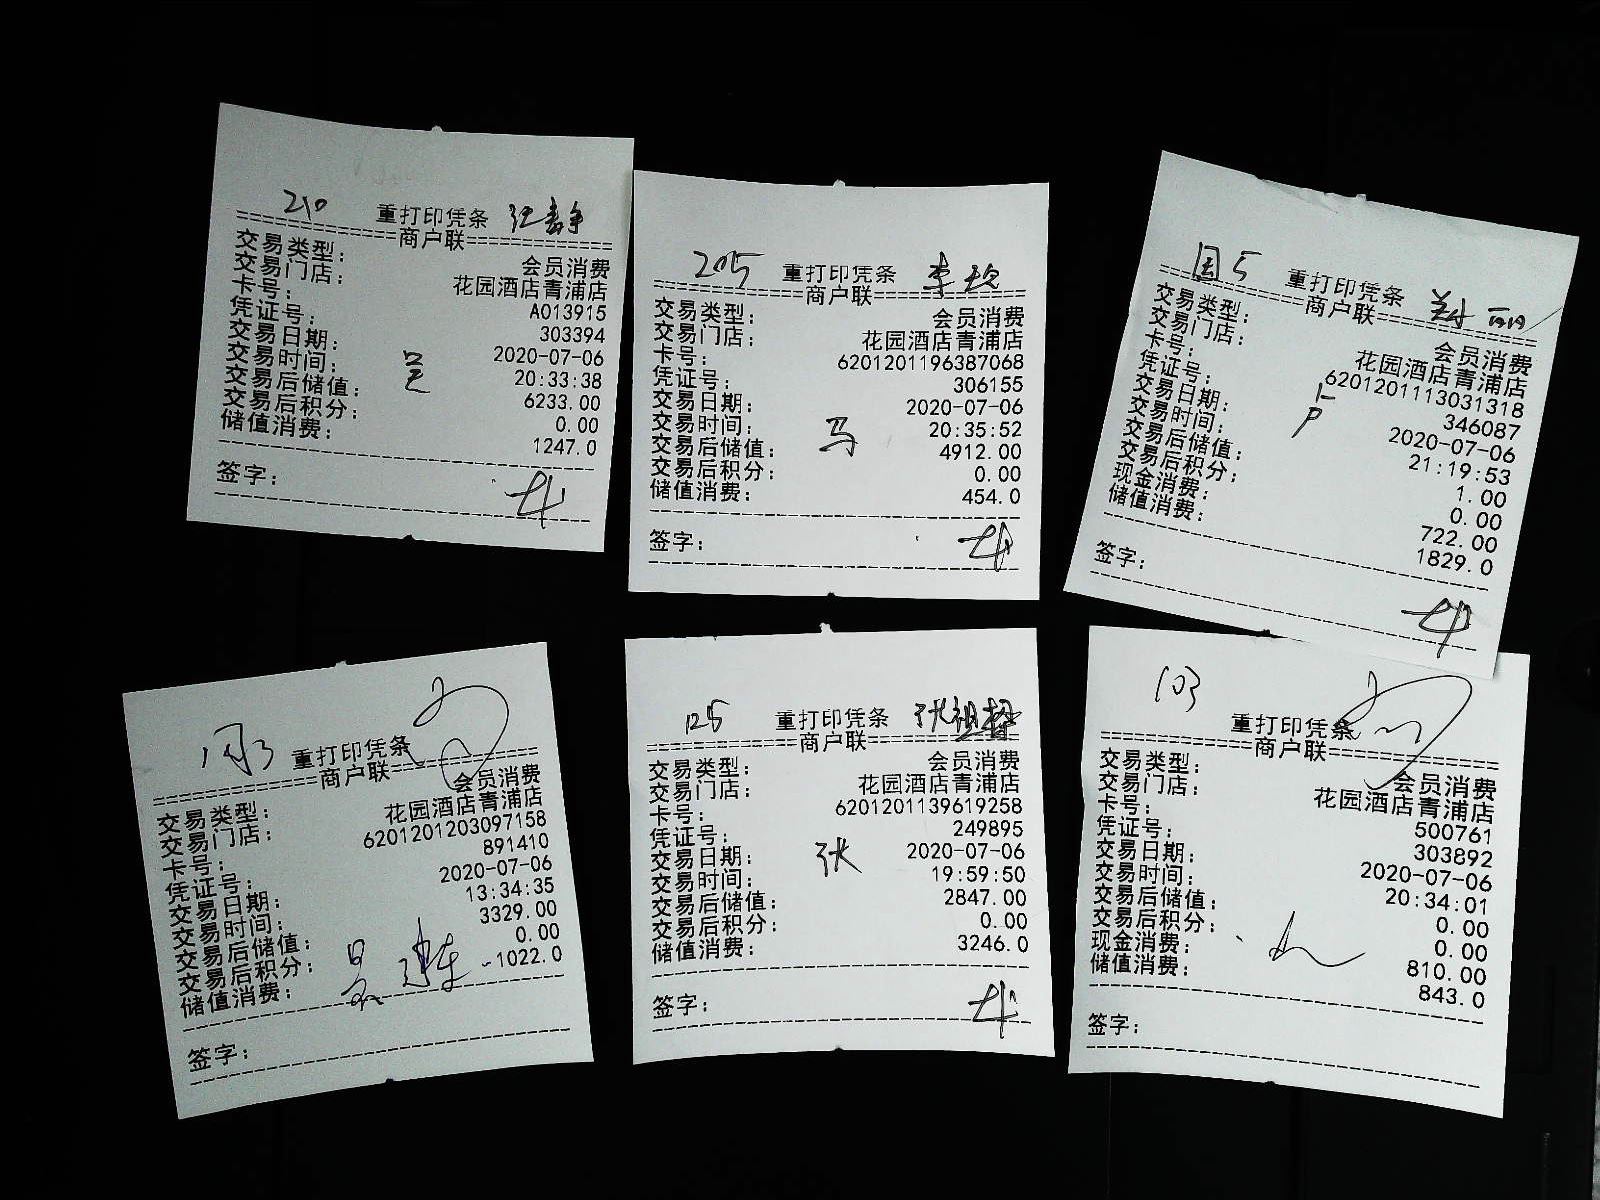 210 重打印凭条
商户联
交易类型： 会员消费
交易门店： 花园酒店青浦店
卡号： A013915
凭证号： 303394
交易日期： 2020-07-06
交易时间： 20:33:38
交易后储值： 6233.00
交易后积分： 0.00
储值消费： 1247.0
签字：
205 重打印凭条
商户联
交易类型： 会员消费
交易门店： 花园酒店青浦店
卡号： 6201201196387068
凭证号： 306155
交易日期： 2020-07-06
交易时间： 20:35:52
马
交易后储值： 4912.00
交易后积分： 0.00
储值消费： 454.0
签字：
国5 重打印凭条
商户联
交易类型： 会员消费
交易门店： 花园酒店青浦店
卡号： 6201201113031318
凭证号： 346087
交易日期： 2020-07-06
交易时间： 21:19:53
交易后储值： 1.00
交易后积分： 0.00
现金消费： 722.00
储值消费： 1829.0
签字：
重打印凭条
商户联
交易类型： 会员消费
交易门店： 花园酒店青浦店
卡号： 6201201203097158
凭证号： 891410
交易日期： 2020-07-06
交易时间： 13:34:35
交易后储值： 3329.00
交易后积分： 0.00
储值消费： -1022.0
签字：
125 重打印凭条
商户联
交易类型： 会员消费
交易门店： 花园酒店青浦店
卡号： 6201201139619258
凭证号： 249895
交易日期： 2020-07-06
张
交易时间： 19:59:50
交易后储值： 2847.00
交易后积分： 0.00
储值消费： 3246.0
签字：
103
重打印凭条
商户联
交易类型： 会员消费
交易门店： 花园酒店青浦店
卡号： 500761
凭证号： 303892
交易日期： 2020-07-06
交易时间： 20:34:01
交易后储值： 0.00
交易后积分： 0.00
现金消费： 810.00
储值消费： 843.0
签字：